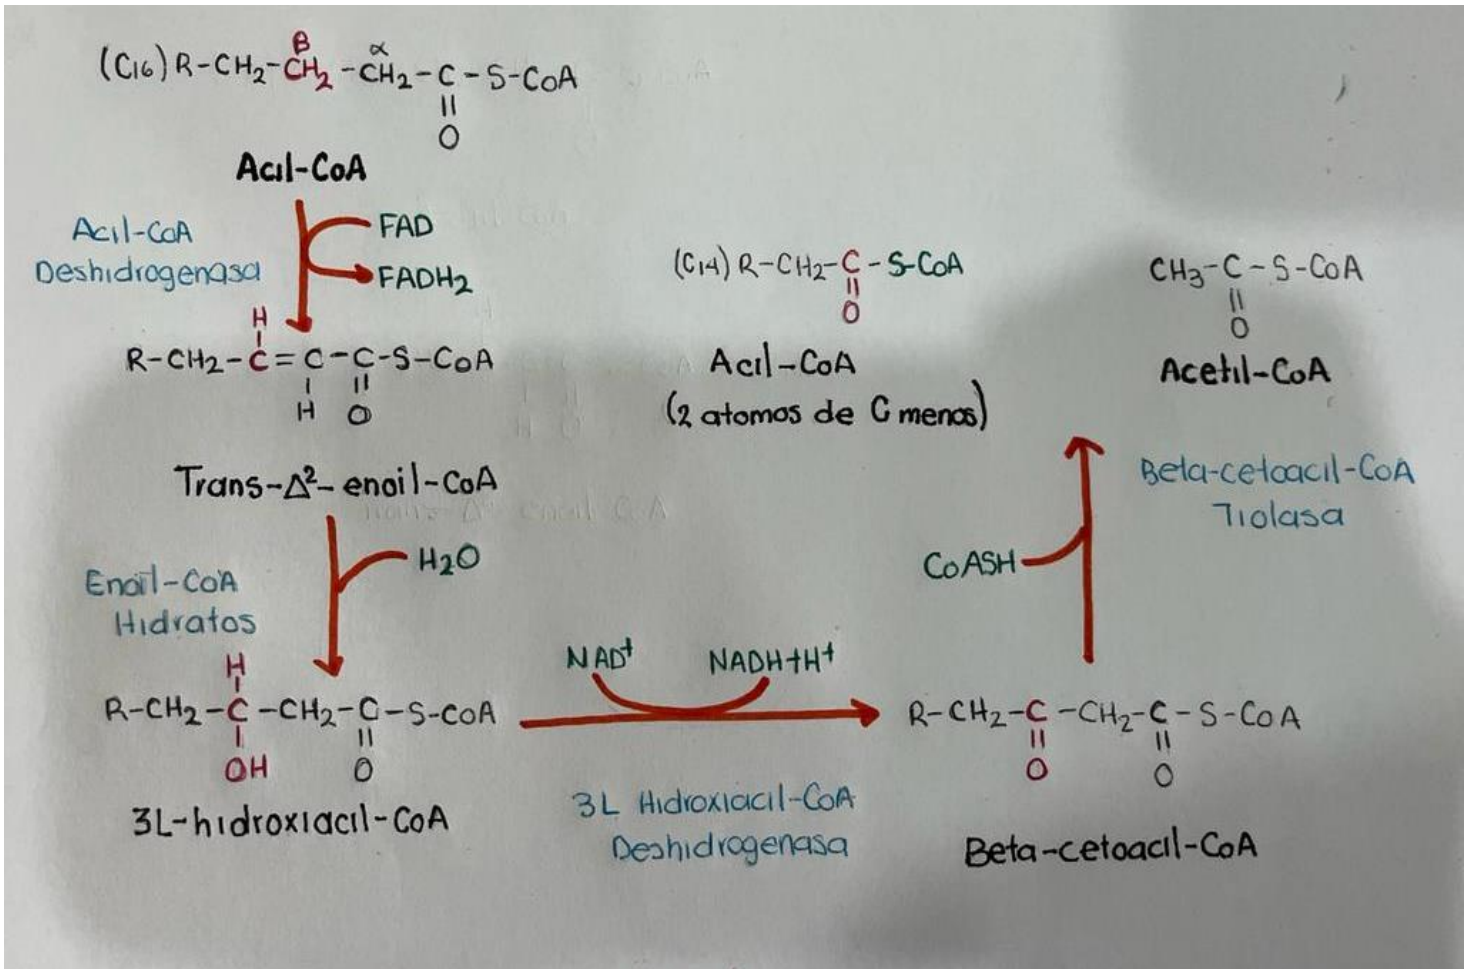 β α
(C16) R-CH2-CH2-CH2-C-S-CoA
||
O
Acil-CoA
Acil-CoA
Deshidrogenasa
FAD
FADH2
H
R-CH2-C=C-C-S-CoA
H O
Trans-Δ²-enoil-CoA
Enoil-CoA
Hidratos
H2O
H
R-CH2-C-CH2-C-S-COA
OH O
3L-hidroxiacil-CoA
NAD+ NADH+H+
3L Hidroxiacil-CoA
Deshidrogenasa
R-CH2-C-CH2-C-S-CoA
O O
Beta-cetoacil-CoA
CoASH
Beta-cetoacil-CoA
Tiolasa
(C14) R-CH2-C-S-CoA
O
Acil-CoA
(2 atomos de C menos)
CH3-C-S-CoA
O
Acetil-CoA